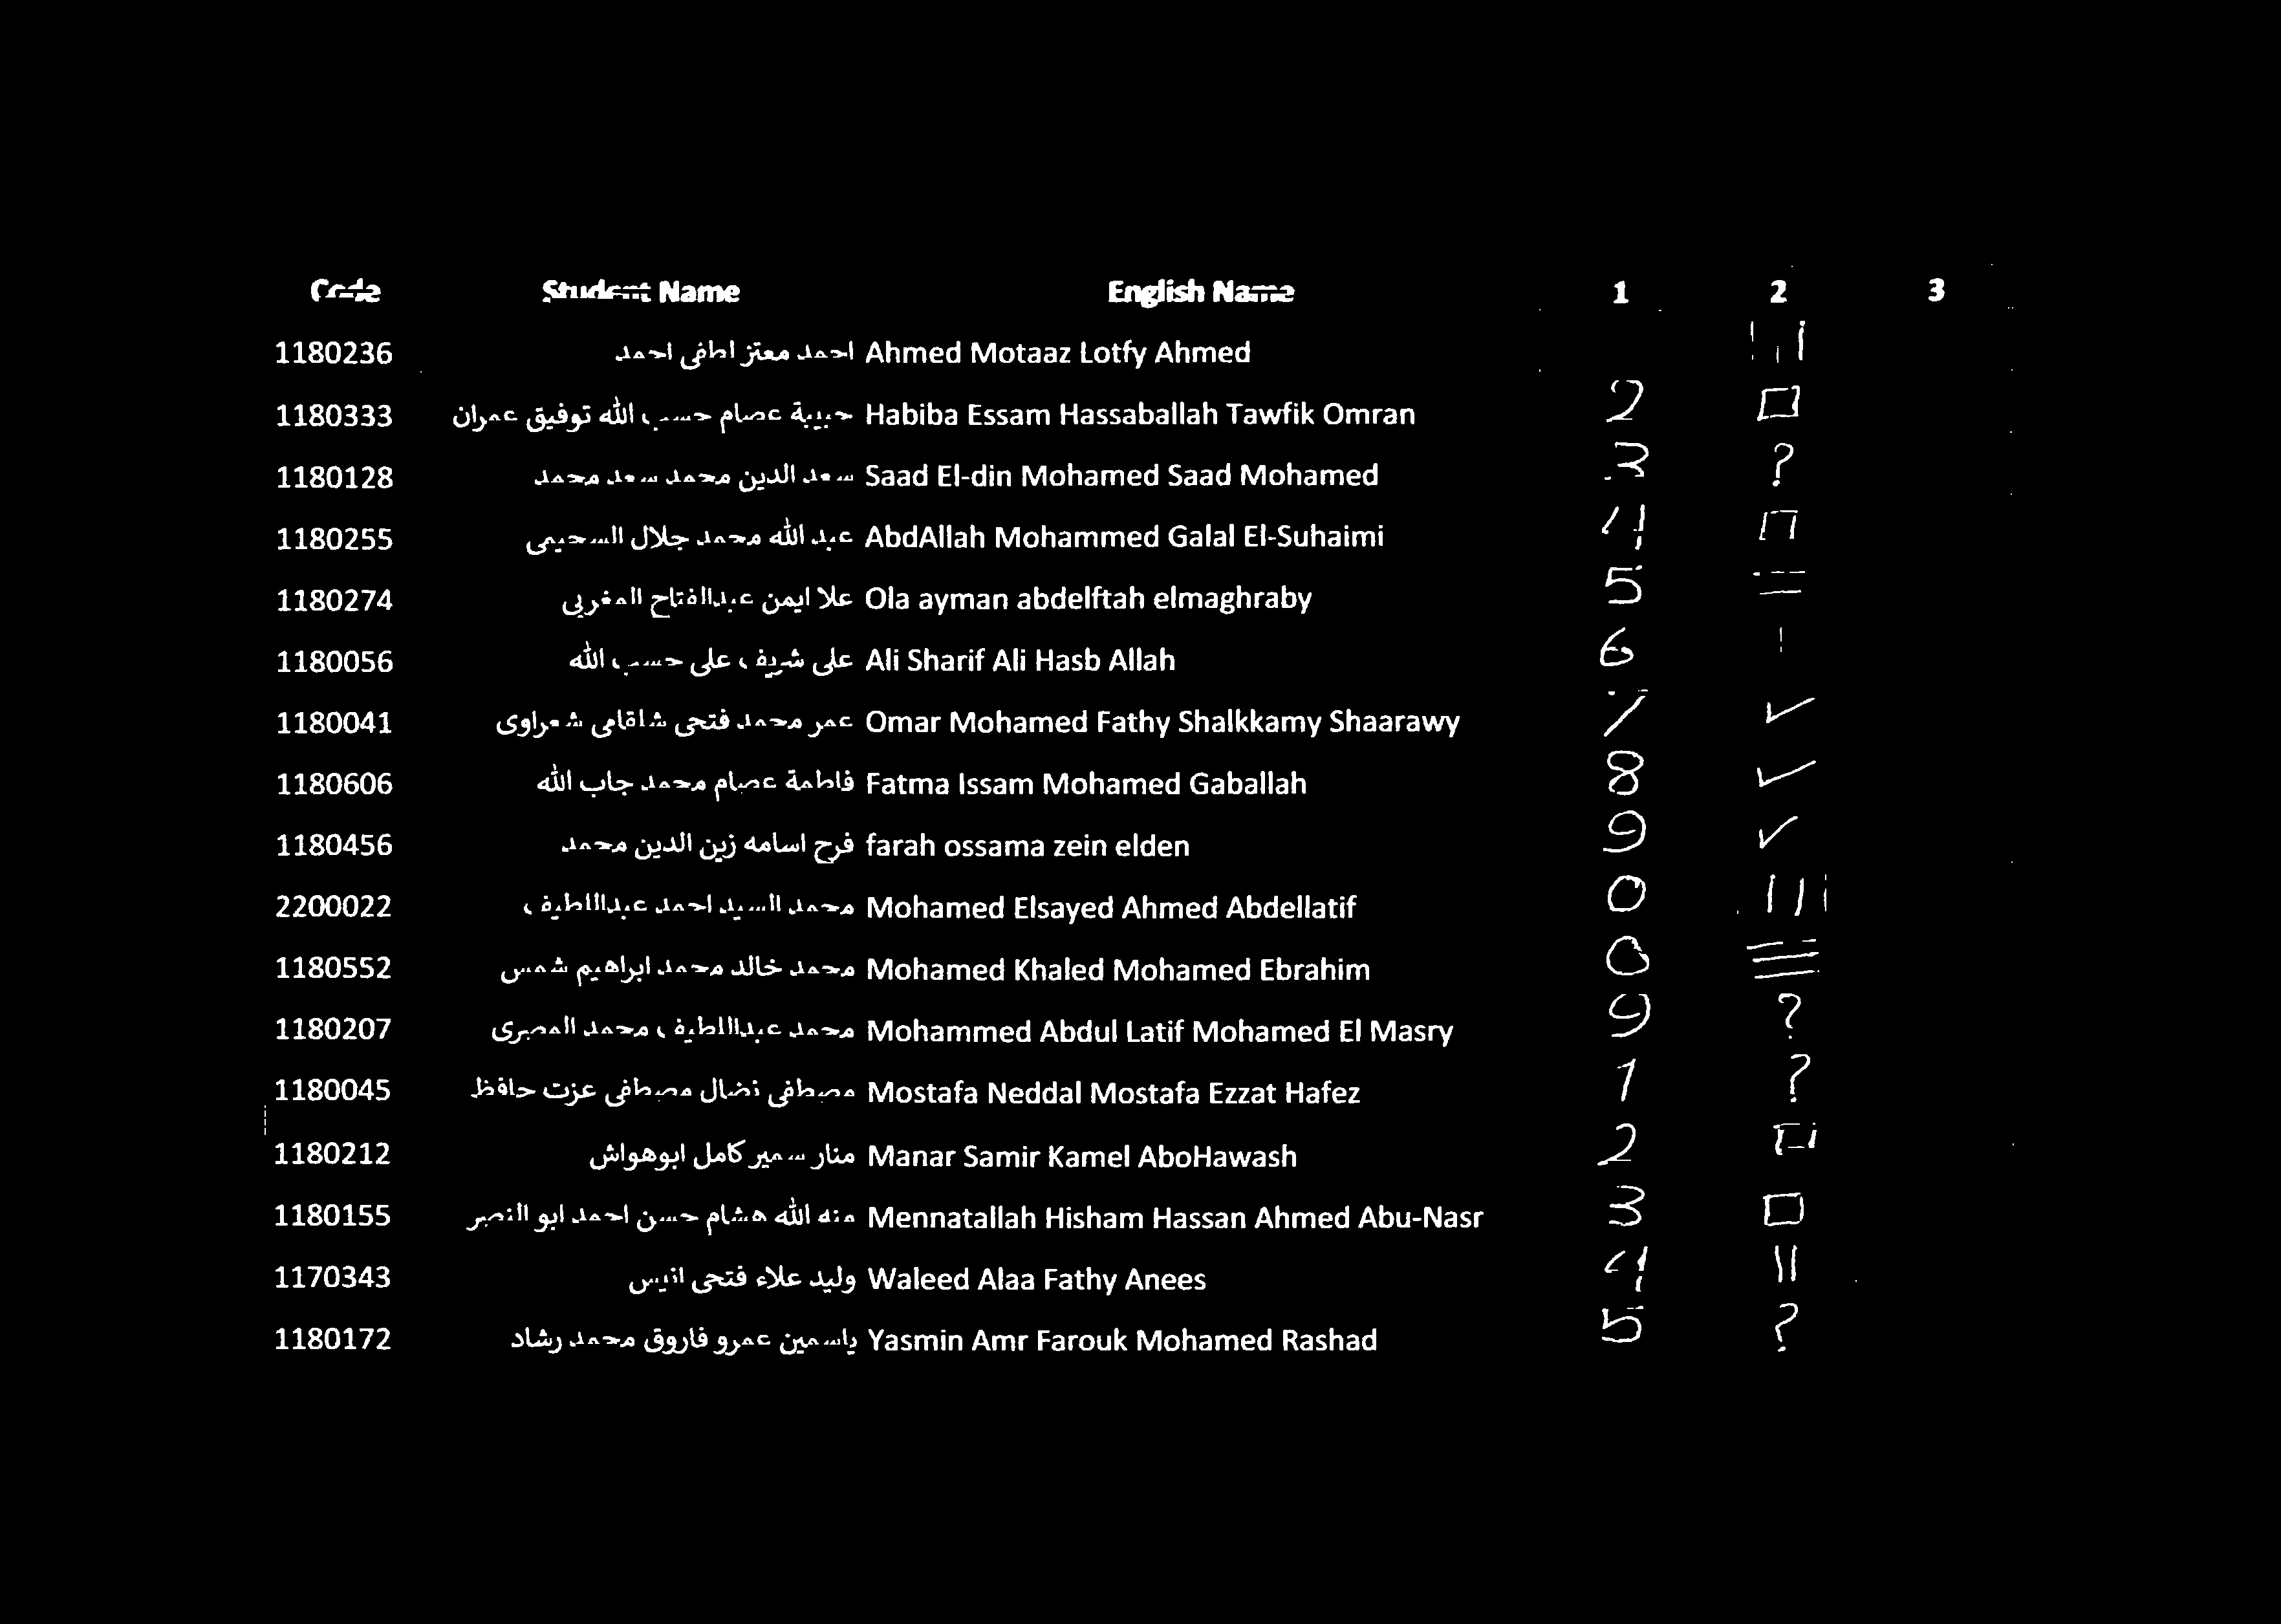 Code Student Name English Name 1 2 3
1180236 احمد معتز لطفى احمد Ahmed Motaaz Lotfy Ahmed
1180333 حبيبة عصام حسب الله توفيق عمران Habiba Essam Hassaballah Tawfik Omran 2 □
1180128 سعد الدين محمد سعد محمد Saad El-din Mohamed Saad Mohamed 3 ?
1180255 عبد الله محمد جلال السحيمى AbdAllah Mohammed Galal El-Suhaimi 4
1180274 علا ايمن عبدالفتاح المغربى Ola ayman abdelftah elmaghraby 5 =
1180056 على شريف على حسب الله Ali Sharif Ali Hasb Allah 6
1180041 عمر محمد فتحى شلقامى شعراوى Omar Mohamed Fathy Shalkkamy Shaarawy 7 ✓
1180606 فاطمة عصام محمد جاب الله Fatma Issam Mohamed Gaballah 8 ✓
1180456 فرح اسامه زين الدين محمد farah ossama zein elden 9 ✓
2200022 محمد السيد احمد عبداللطيف Mohamed Elsayed Ahmed Abdellatif 0 |||
1180552 محمد خالد محمد ابراهيم شمس Mohamed Khaled Mohamed Ebrahim 0 ≡
1180207 محمد عبداللطيف محمد المصرى Mohammed Abdul Latif Mohamed El Masry 9 ?
1180045 مصطفى نضال مصطفى عزت حافظ Mostafa Neddal Mostafa Ezzat Hafez 1 ?
1180212 منار سمير كامل ابوهواش Manar Samir Kamel AboHawash 2 □
1180155 منه الله هشام حسن احمد ابو النصر Mennatallah Hisham Hassan Ahmed Abu-Nasr 3 □
1170343 وليد علاء فتحى انيس Waleed Alaa Fathy Anees 4 ||
1180172 ياسمين عمرو فاروق محمد رشاد Yasmin Amr Farouk Mohamed Rashad 5 ?